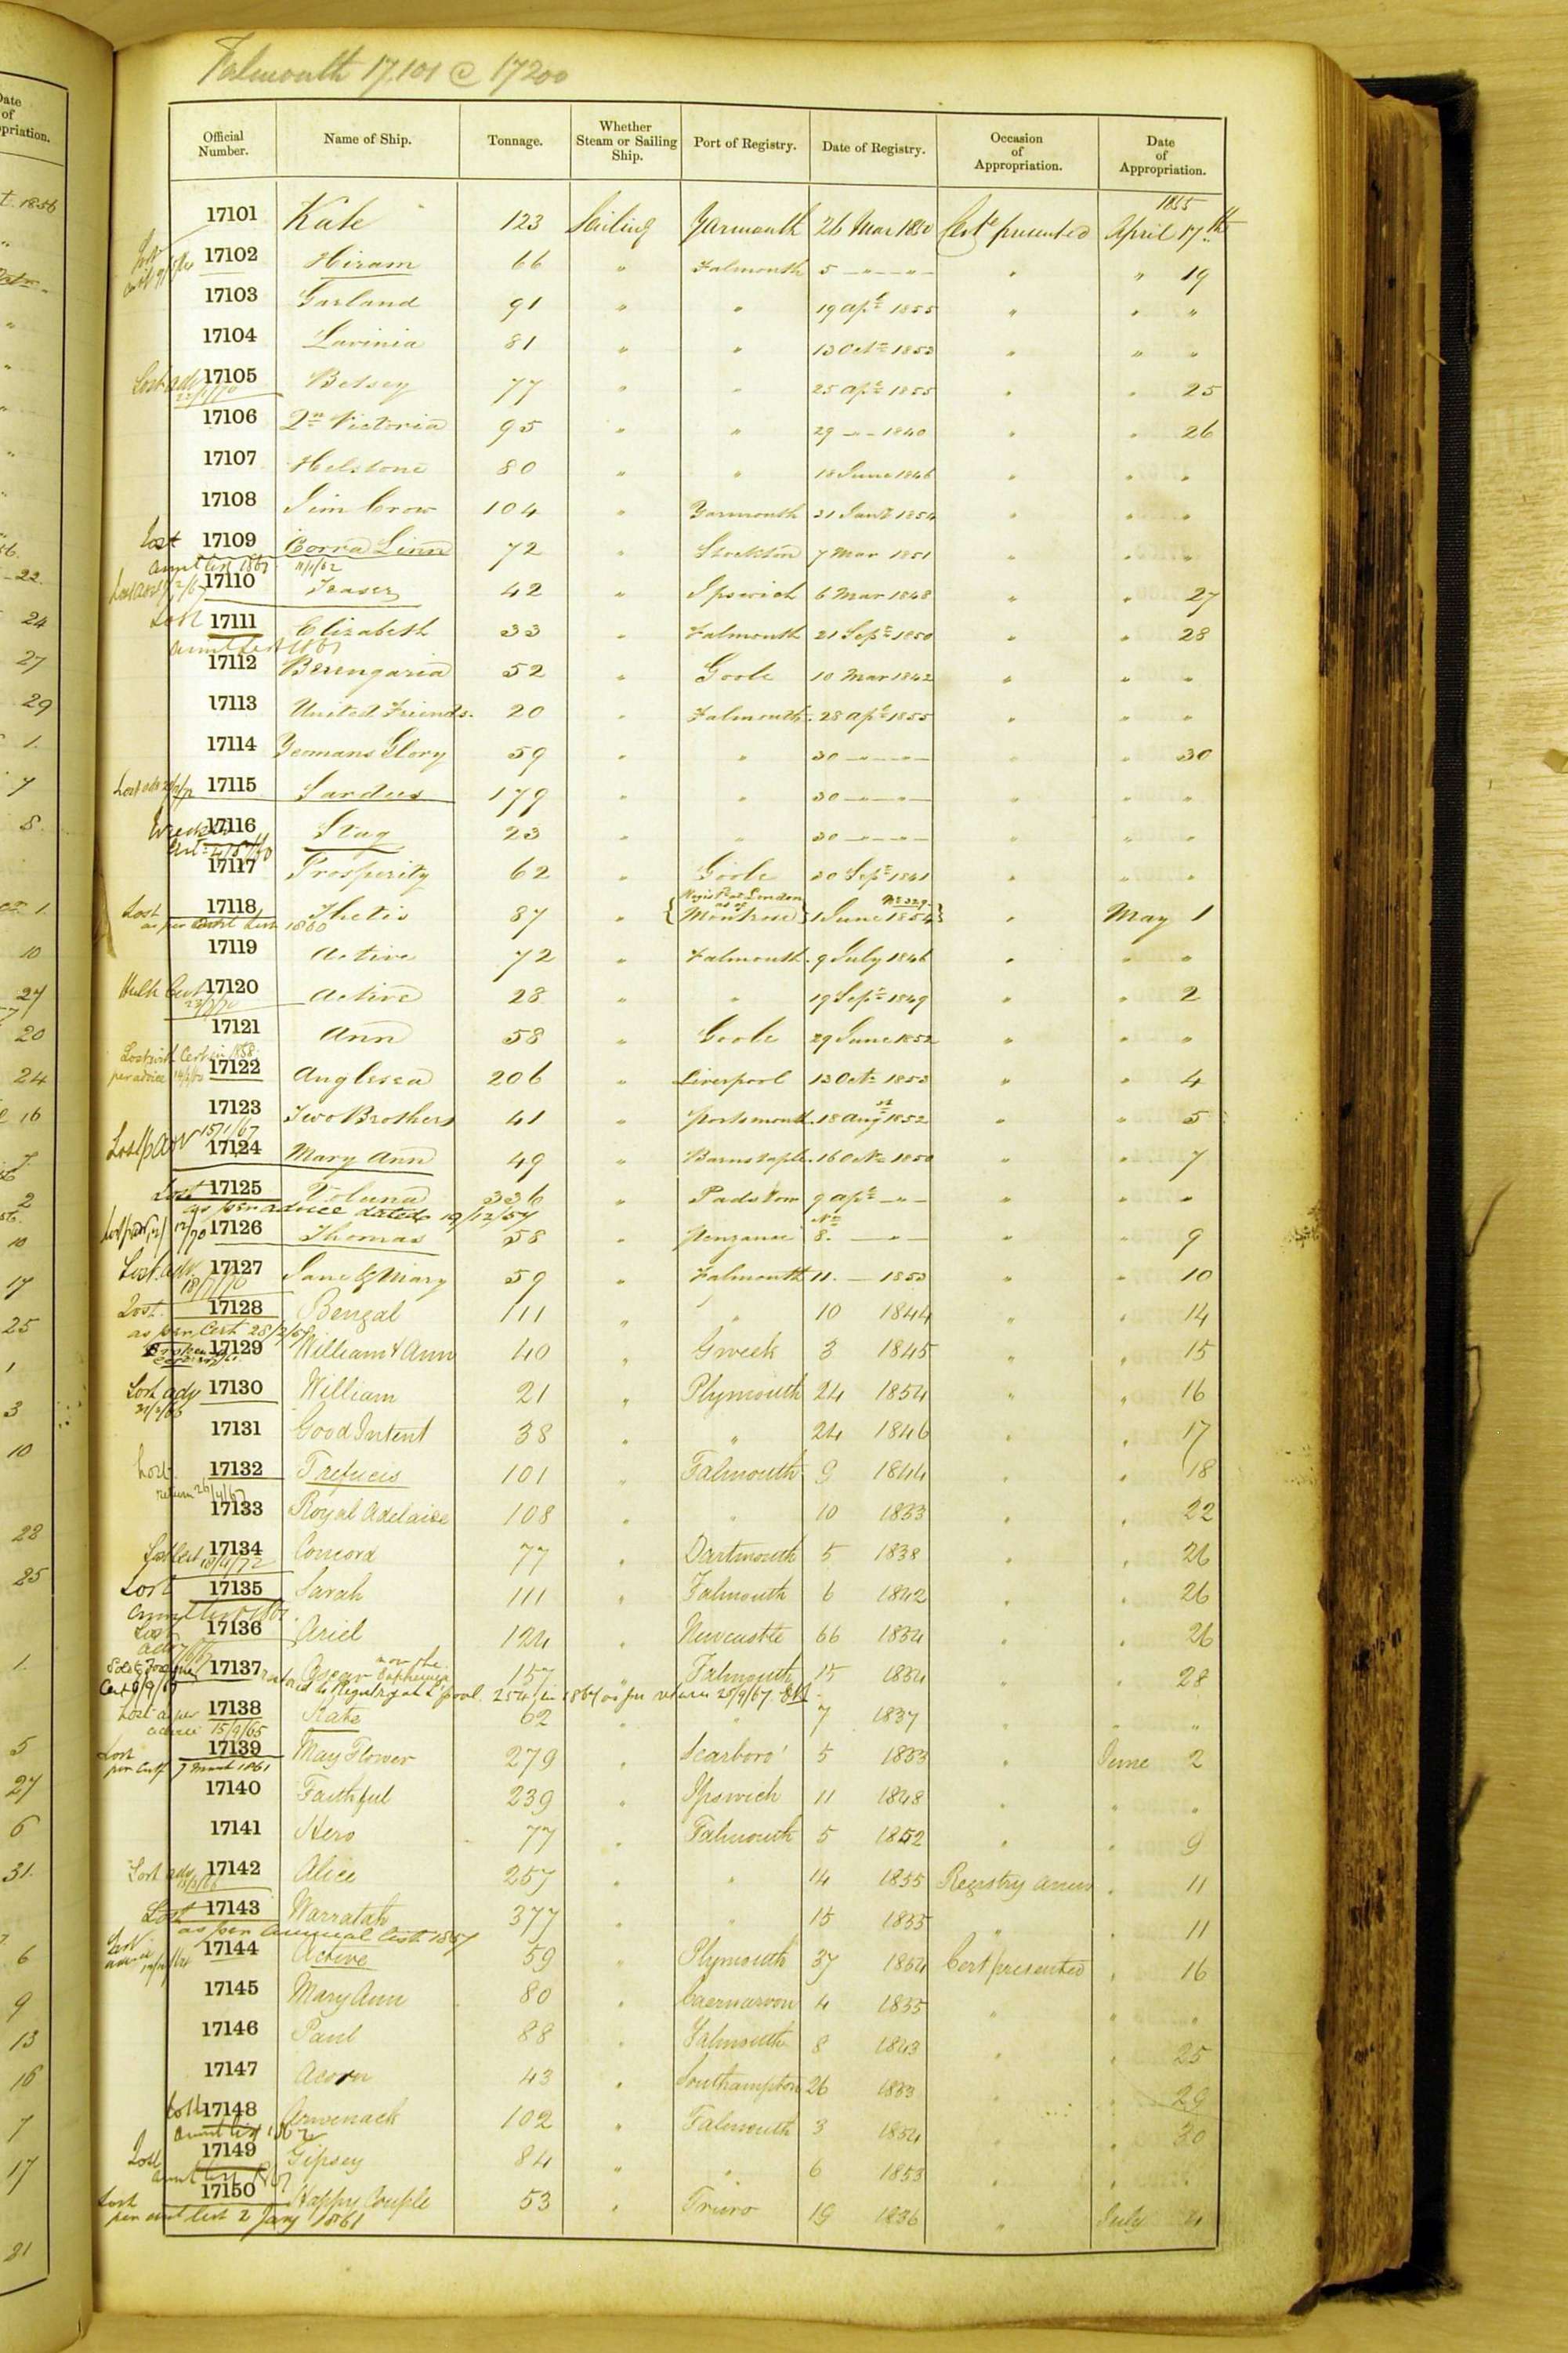 Falmouth 17,101 @ 17200
Official Number. Name of Ship. Tonnage. Whether Steam or Sailing Ship. Port of Registry. Date of Registry. Occasion of Appropriation. Date of Appropriation.
1855
17101 Kate 123 Sailing Yarmouth 26 Mar 1850 Certe presented April 17th
17102 Hiram 66 " Falmouth 5 — " — " — " " 19
17103 Garland 91 " " 19 Apl 1855 " " "
17104 Lavinia 81 " " 13 Octr 1853 " " "
Lost adv 17105 Betsey 77 " " 25 Apl 1855 " " 25
17106 Qn Victoria 95 " " 29 — " — 1840 " " 26
17107 Helstone 80 " " 18 June 1846 " " "
17108 Jim Crow 104 " Yarmouth 31 Jany 1854 " " "
Lost 17109 Corra Linn 72 " Stockton 7 Mar 1851 " " "
Annl List 1861 11/1/62
17110 Teaser 42 " Ipswich 6 Mar 1848 " " 27
Lost 17111 Elizabeth 33 " Falmouth 21 Sepr 1850 " " 28
Annl List 1861
17112 Berengaria 52 " Goole 10 Mar 1842 " " "
17113 United Friends. 20 " Falmouth. 28 Apl 1855 " " "
17114 Yeomans Glory 59 " " 30 — " — " — " " 30
17115 Sardius 179 " " 30 — " — " — " " "
Wrecked 17116 Stag 23 " " 30 — " — " — " " "
17117 Prosperity 62 " Goole 20 Sepr 1841 " " "
Regist at London as of No 329
Lost 17118 Thetis 87 " { Montrose } 1 June 1854 } " May 1
as per Annl List 1860
17119 Active 72 " Falmouth. 9 July 1846 " " "
Hulk Cert 17120 Active 28 " " 19 Sepr 1849 " " 2
17121 Ann 58 " Goole 29 June 1852 " " "
Lost with Cert in 1858
per advice 17122 Anglesea 206 " Liverpool 13 Octr 1853 " " 4
17123 Two Brothers 41 " Portsmouth. 18 Augst 1852 " " 5
15/1/67
Loss p adv 17124 Mary Ann 49 " Barnstaple. 16 Octr 1850 " " 7
Lost 17125 Voluna 336 " Padstow 9 Apl — " — " " "
as per advice dated 19/12/57
17126 Thomas 58 " Penzance No 8. — " — " " 9
Lost adv. 17127 Jane & Mary 59 " Falmouth 11. — 1853 " " 10
18/7/70
Lost. 17128 Bengal 111 " " 10 1844 " " 14
as per Cert 28/2/67
17129 William & Ann 40 " Gweek 3 1845 " " 15
Lost adv 17130 William 21 " Plymouth 24 1854 " " 16
17131 Good Intent 38 " " 24 1846 " " 17
Lost. 17132 Trefucis 101 " Falmouth 9 1844 " " 18
return 26/4/67
17133 Royal Adelaide 108 " " 10 1833 " " 22
Lost Cert 17134 Concord 77 " Dartmouth 5 1838 " " 26
18/4/72
Lost 17135 Sarah 111 " Falmouth 6 1842 " " 26
Annl List 1861
Lost 17136 Ariel 124 " Newcastle 66 1834 " " 26
now the
Sold Foreign 17137 Oscar Euphemia 157 " Falmouth 15 1834 " " 28
Restored to Registry at L'pool 254 in 1864 as per return 25/9/67
Lost as per 17138 Kate 62 " " 7 1837 " " "
advice 15/9/65
Lost 17139 May Flower 279 " Scarboro' 5 1833 " June 2
per Certf 7 March 1861
17140 Faithful 239 " Ipswich 11 1848 " " "
17141 Hero 77 " Falmouth 5 1852 " " 9
Lost adv 17142 Alice 257 " " 14 1855 Registry anew " 11
Lost 17143 Warratah 377 " " 15 1855 " " 11
as per Annual List 1857
Lost 17144 Active 59 " Plymouth 37 1854 Cert presented " 16
17145 Mary Ann 80 " Caernarvon 4 1835 " " "
17146 Paul 88 " Falmouth 8 1843 " " 25
17147 Acorn 43 " Southampton 26 1833 " " 29
Lost 17148 Arwenack 102 " Falmouth 3 1854 " " 30
Annl List 1862
Lost 17149 Gipsey 84 " " 6 1853 " " "
Annl List
Lost 17150 Happy Couple 53 " Truro 19 1836 " July
per annl list 2 Jany 1861